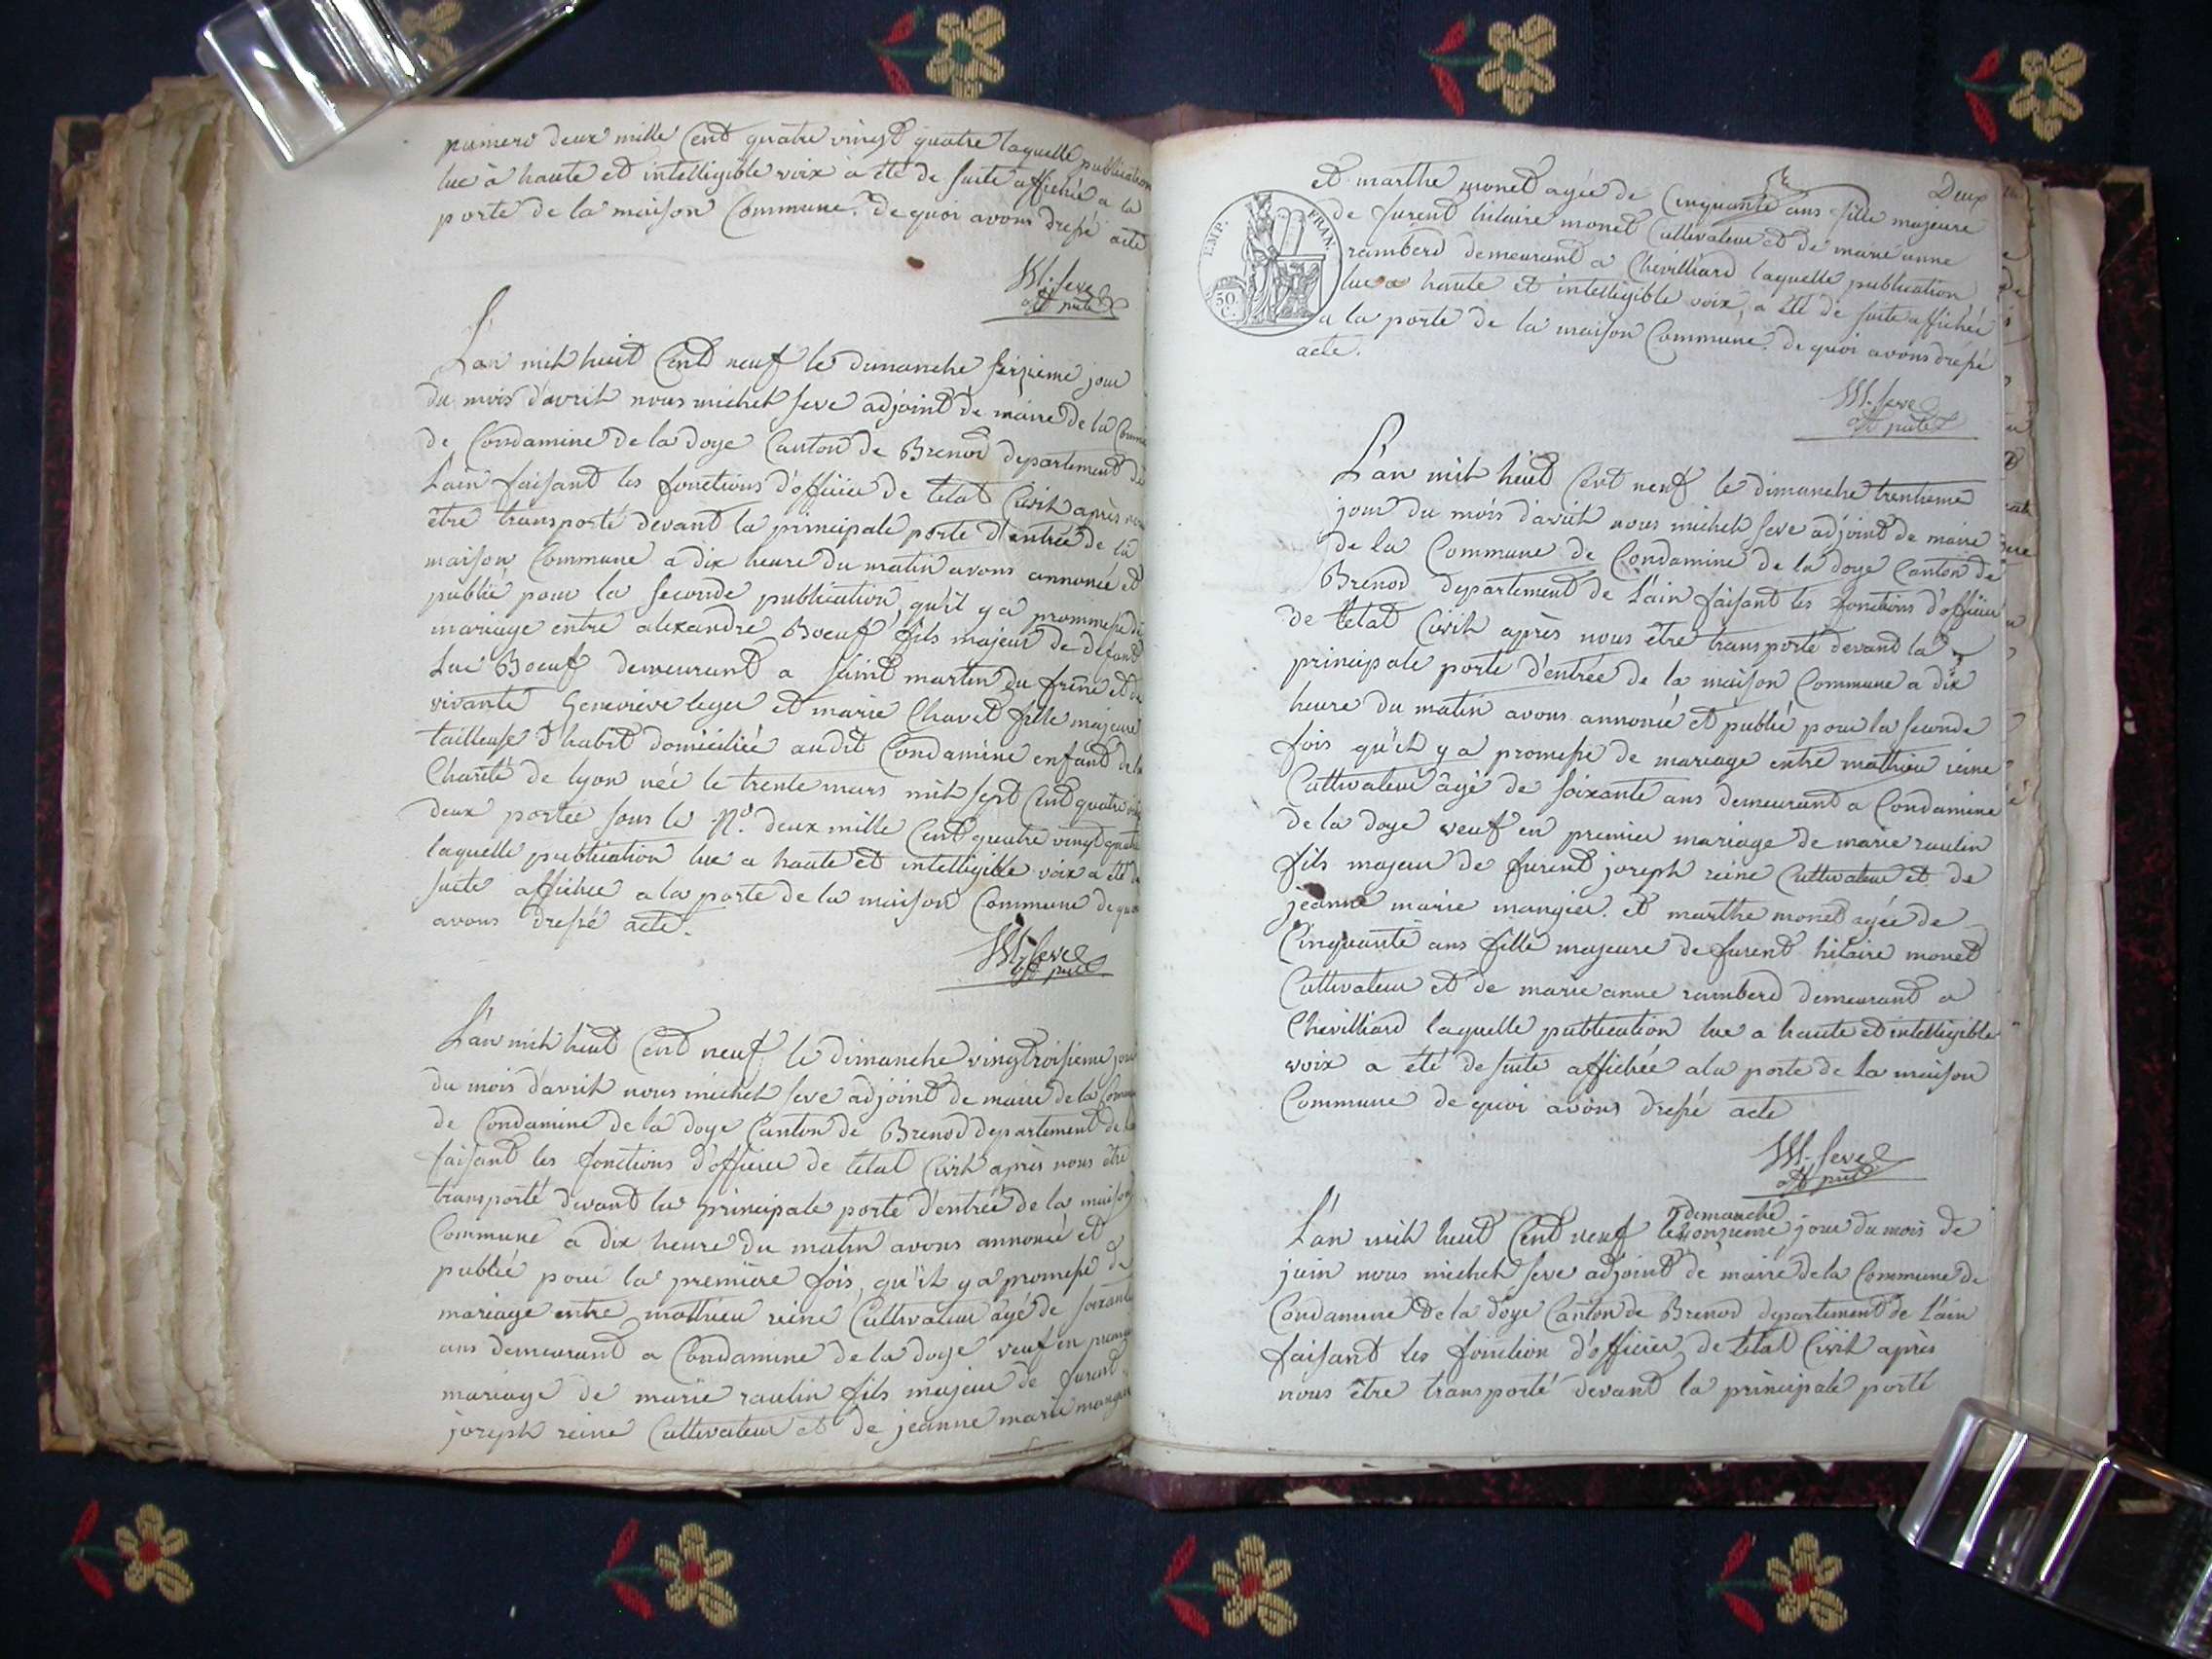 numero deux mille Cent quatre vingt quatre laquelle publication
lue à haute et intelligible voix a été de suite affichée a la
porte de la maison Commune. de quoi avons dressé acte
M. Seve
L'an mil huit Cent neuf le dimanche seizieme jour
du mois d'avril nous michel seve adjoint de maire de la
de Condamine de la doye Canton de Brenod departement de
L'ain faisant les fonctions d'officier de letat Civil après nous
être transporté devant la principale porte d'entrée de la
maison Commune a dix heure du matin avons annoncé et
publié pour la seconde publication, qu'il y a prommesse de
mariage entre alexandre Boeuf fils majeur de defunt
Luc Boeuf demeurant a saint martin du frêne et de
vivante Genevieve leger et marie Chavet fille majeure
tailleuse d'habit domiciliée audit Condamine enfant de la
Charité de lyon née le trente mars mil sept Cent quatre
deux portée sous le N.º deux mille Cent quatre vingt quatre
laquelle publication lue a haute et intelligible voix a été de
suite affichée a la porte de la maison Commune de quoi
avons dressé acte.
M. Seve
L'an mil huit Cent neuf le dimanche vingtroisieme jour
du mois d'avril nous michel seve adjoint de maire de la
de Condamine de la doye Canton de Brenod departement de
faisant les fonctions d'officier de letat Civil après nous être
transporté devant la principale porte d'entrée de la maison
Commune a dix heure du matin avons annoncé et
publié pour la première fois, qu'il y a promesse de
mariage entre mathieu reine Cultivateur âgé de soixante
ans demeurant a Condamine de la doye veuf en premier
mariage de marie raulin fils majeur de furent
joseph reine Cultivateur et de jeanne marie mangier
Deux
EMP. FRAN.
50. C.
et marthe monet agée de Cinquante ans fille majeure
de furent hilaire monet Cultivateur et de marie anne
ramberd demeurant a Chevilliard laquelle publication
lue a haute et intelligible voix, a été de suite affichée
a la porte de la maison Commune. de quoi avons dressé
acte.
M. Seve
L'an mil huit Cent neuf le dimanche trentieme
jour du mois d'avril nous michel seve adjoint de maire
de la Commune de Condamine de la doye Canton de
Brenod departement de L'ain faisant les fonctions d'officier
de letat Civil après nous être transporté devant la
principale porte d'entrée de la maison Commune a dix
heure du matin avons annoncé et publié pour la seconde
fois qu'il y a promesse de mariage entre mathieu reine
Cultivateur âgé de soixante ans demeurant a Condamine
de la doye veuf en premier mariage de marie raulin
fils majeur de furent joseph reine Cultivateur et de
jeanne marie mangier. et marthe monet agée de
Cinquante ans fille majeure de furent hilaire monet
Cultivateur et de marie anne ramberd demeurant a
Chevilliard laquelle publication lue a haute et intelligible
voix a été de suite affichée a la porte de la maison
Commune de quoi avons dressé acte
M. Seve
dimanche
L'an mil huit Cent neuf le onzieme jour du mois de
juin nous michel seve adjoint de maire de la Commune de
Condamine de la doye Canton de Brenod departement de L'ain
faisant les fonction d'officier de letat Civil après
nous être transporté devant la principale porte